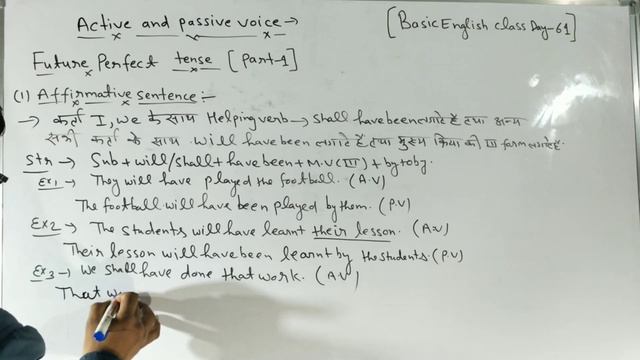 Active and passive voice →
[Basic English class Day-61]
Future Perfect tense [Part-1]
(1) Affirmative sentence:-
→ कर्ता I, we के साथ Helping verb → shall have been लगाते हैं तथा अन्य
सभी कर्ता के साथ will have been लगाते हैं तथा मुख्य क्रिया की III form लगाते हैं.
Str → Sub + will/shall + have been + M.V (III) + by + obj.
Ex1 → They will have played the football. (A.V)
The football will have been played by them. (P.V)
Ex2 → The students will have learnt their lesson. (A.V)
Their lesson will have been learnt by the students. (P.V)
Ex3 → We shall have done that work. (A.V)
That w